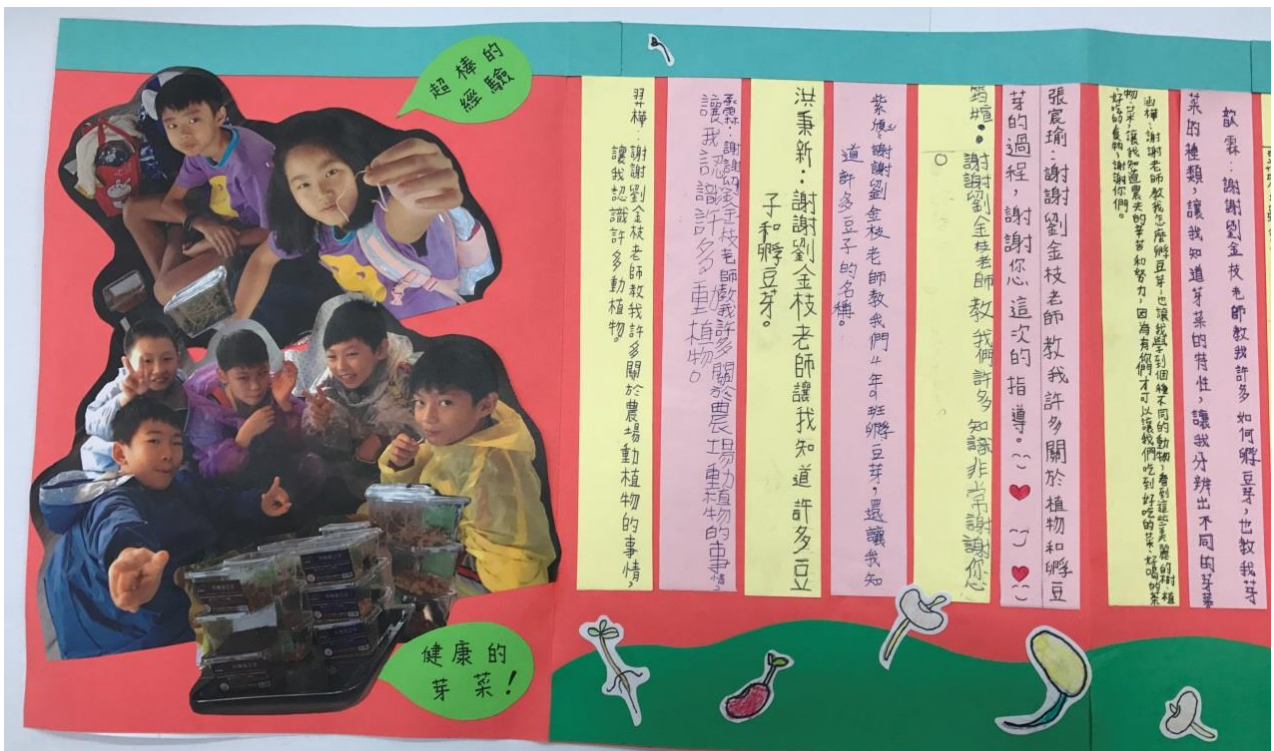 歆霖：謝謝劉金枝老師教我許多如何孵豆芽，也教我芽
菜的種類，讓我知道芽菜的特性，讓我分辨出不同的芽菜
謝謝老師教我怎麼孵豆芽，也讓我學到個種不同的動物，看到這些美麗的樹植
物、菜，讓我知道農夫的辛苦和努力，因為有你們才可以讓我們吃到好吃的菜、好喝的茶
、好吃的食物，謝謝你們。
張宸瑜：謝謝劉金枝老師教我許多關於植物和孵豆
芽的過程，謝謝您這次的指導。
謝謝劉金枝老師教我們許多知識非常謝謝您
。
謝謝劉金枝老師教我們4年9班孵豆芽，還讓我知
道許多豆子的名稱。
洪秉新：謝謝劉金枝老師讓我知道許多豆
子和孵豆芽。
謝謝劉金枝老師教我許多關於農場動植物的事情，
讓我認識許多動植物。
羿樺：謝謝劉金枝老師教我許多關於農場動植物的事情
讓我認識許多動植物。
超棒的
經驗
健康的
芽菜！